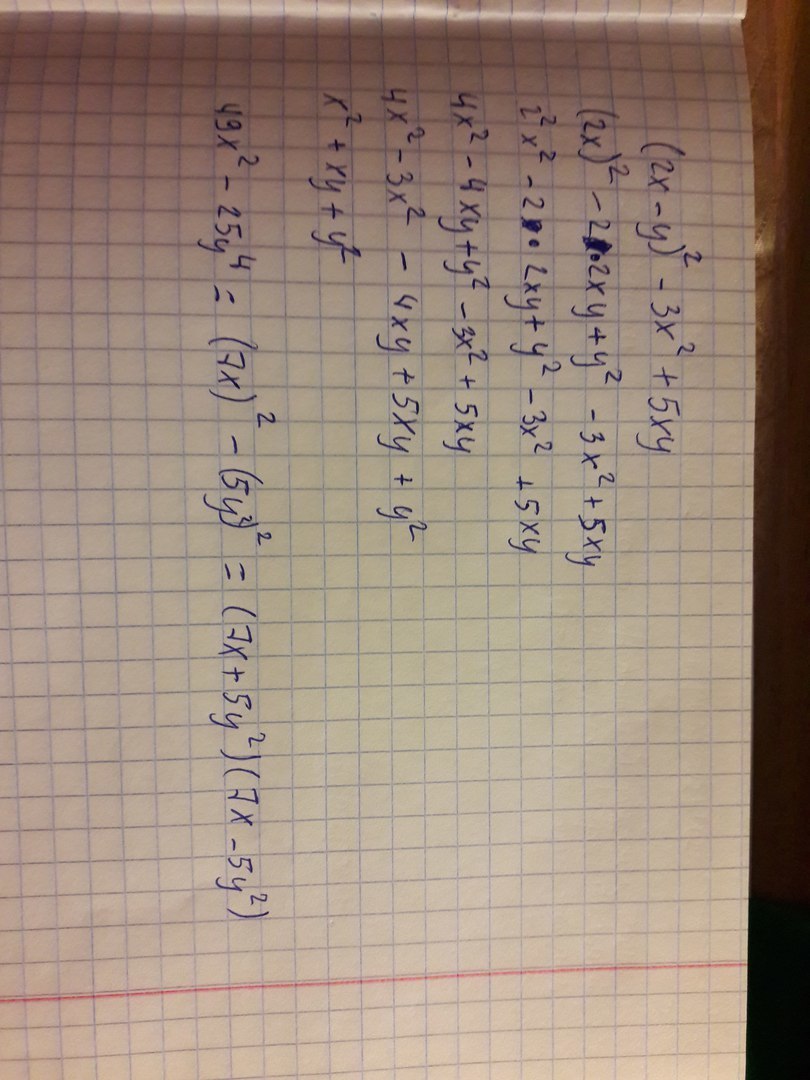 (2x - y)² - 3x² + 5xy
(2x)² - 2·2xy + y² - 3x² + 5xy
2²x² - 2·2xy + y² - 3x² + 5xy
4x² - 4xy + y² - 3x² + 5xy
4x² - 3x² - 4xy + 5xy + y²
x² + xy + y²
49x² - 25y⁴ = (7x)² - (5y²)² = (7x + 5y²)(7x - 5y²)